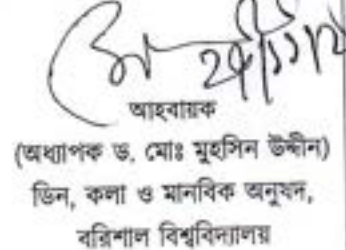 আহবায়ক
(অধ্যাপক ড. মোঃ মুহসিন উদ্দীন)
ডিন, কলা ও মানবিক অনুষদ,
বরিশাল বিশ্ববিদ্যালয়